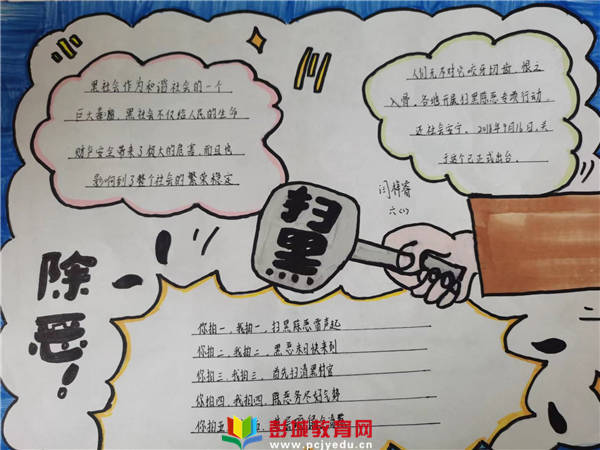 黑社会作为和谐社会的一个
巨大毒瘤,黑社会不仅给人民的生命
财产安全带来了极大的危害,而且也
影响到了整个社会的繁荣稳定
人们无不对它咬牙切齿,恨之
入骨,各地开展扫黑除恶专项行动,
还社会安宁。2018年9月16日,关
于这个已正式出台。
闫梓睿
六(1)
扫黑
除恶!
你拍一,我拍一,扫黑除恶雷声起
你拍二,我拍二,黑恶末日快来到
你拍三,我拍三,首先扫清黑村官
你拍四,我拍四,除恶务尽好气势
你拍五
彭城教育网
www.pcjyedu.cn